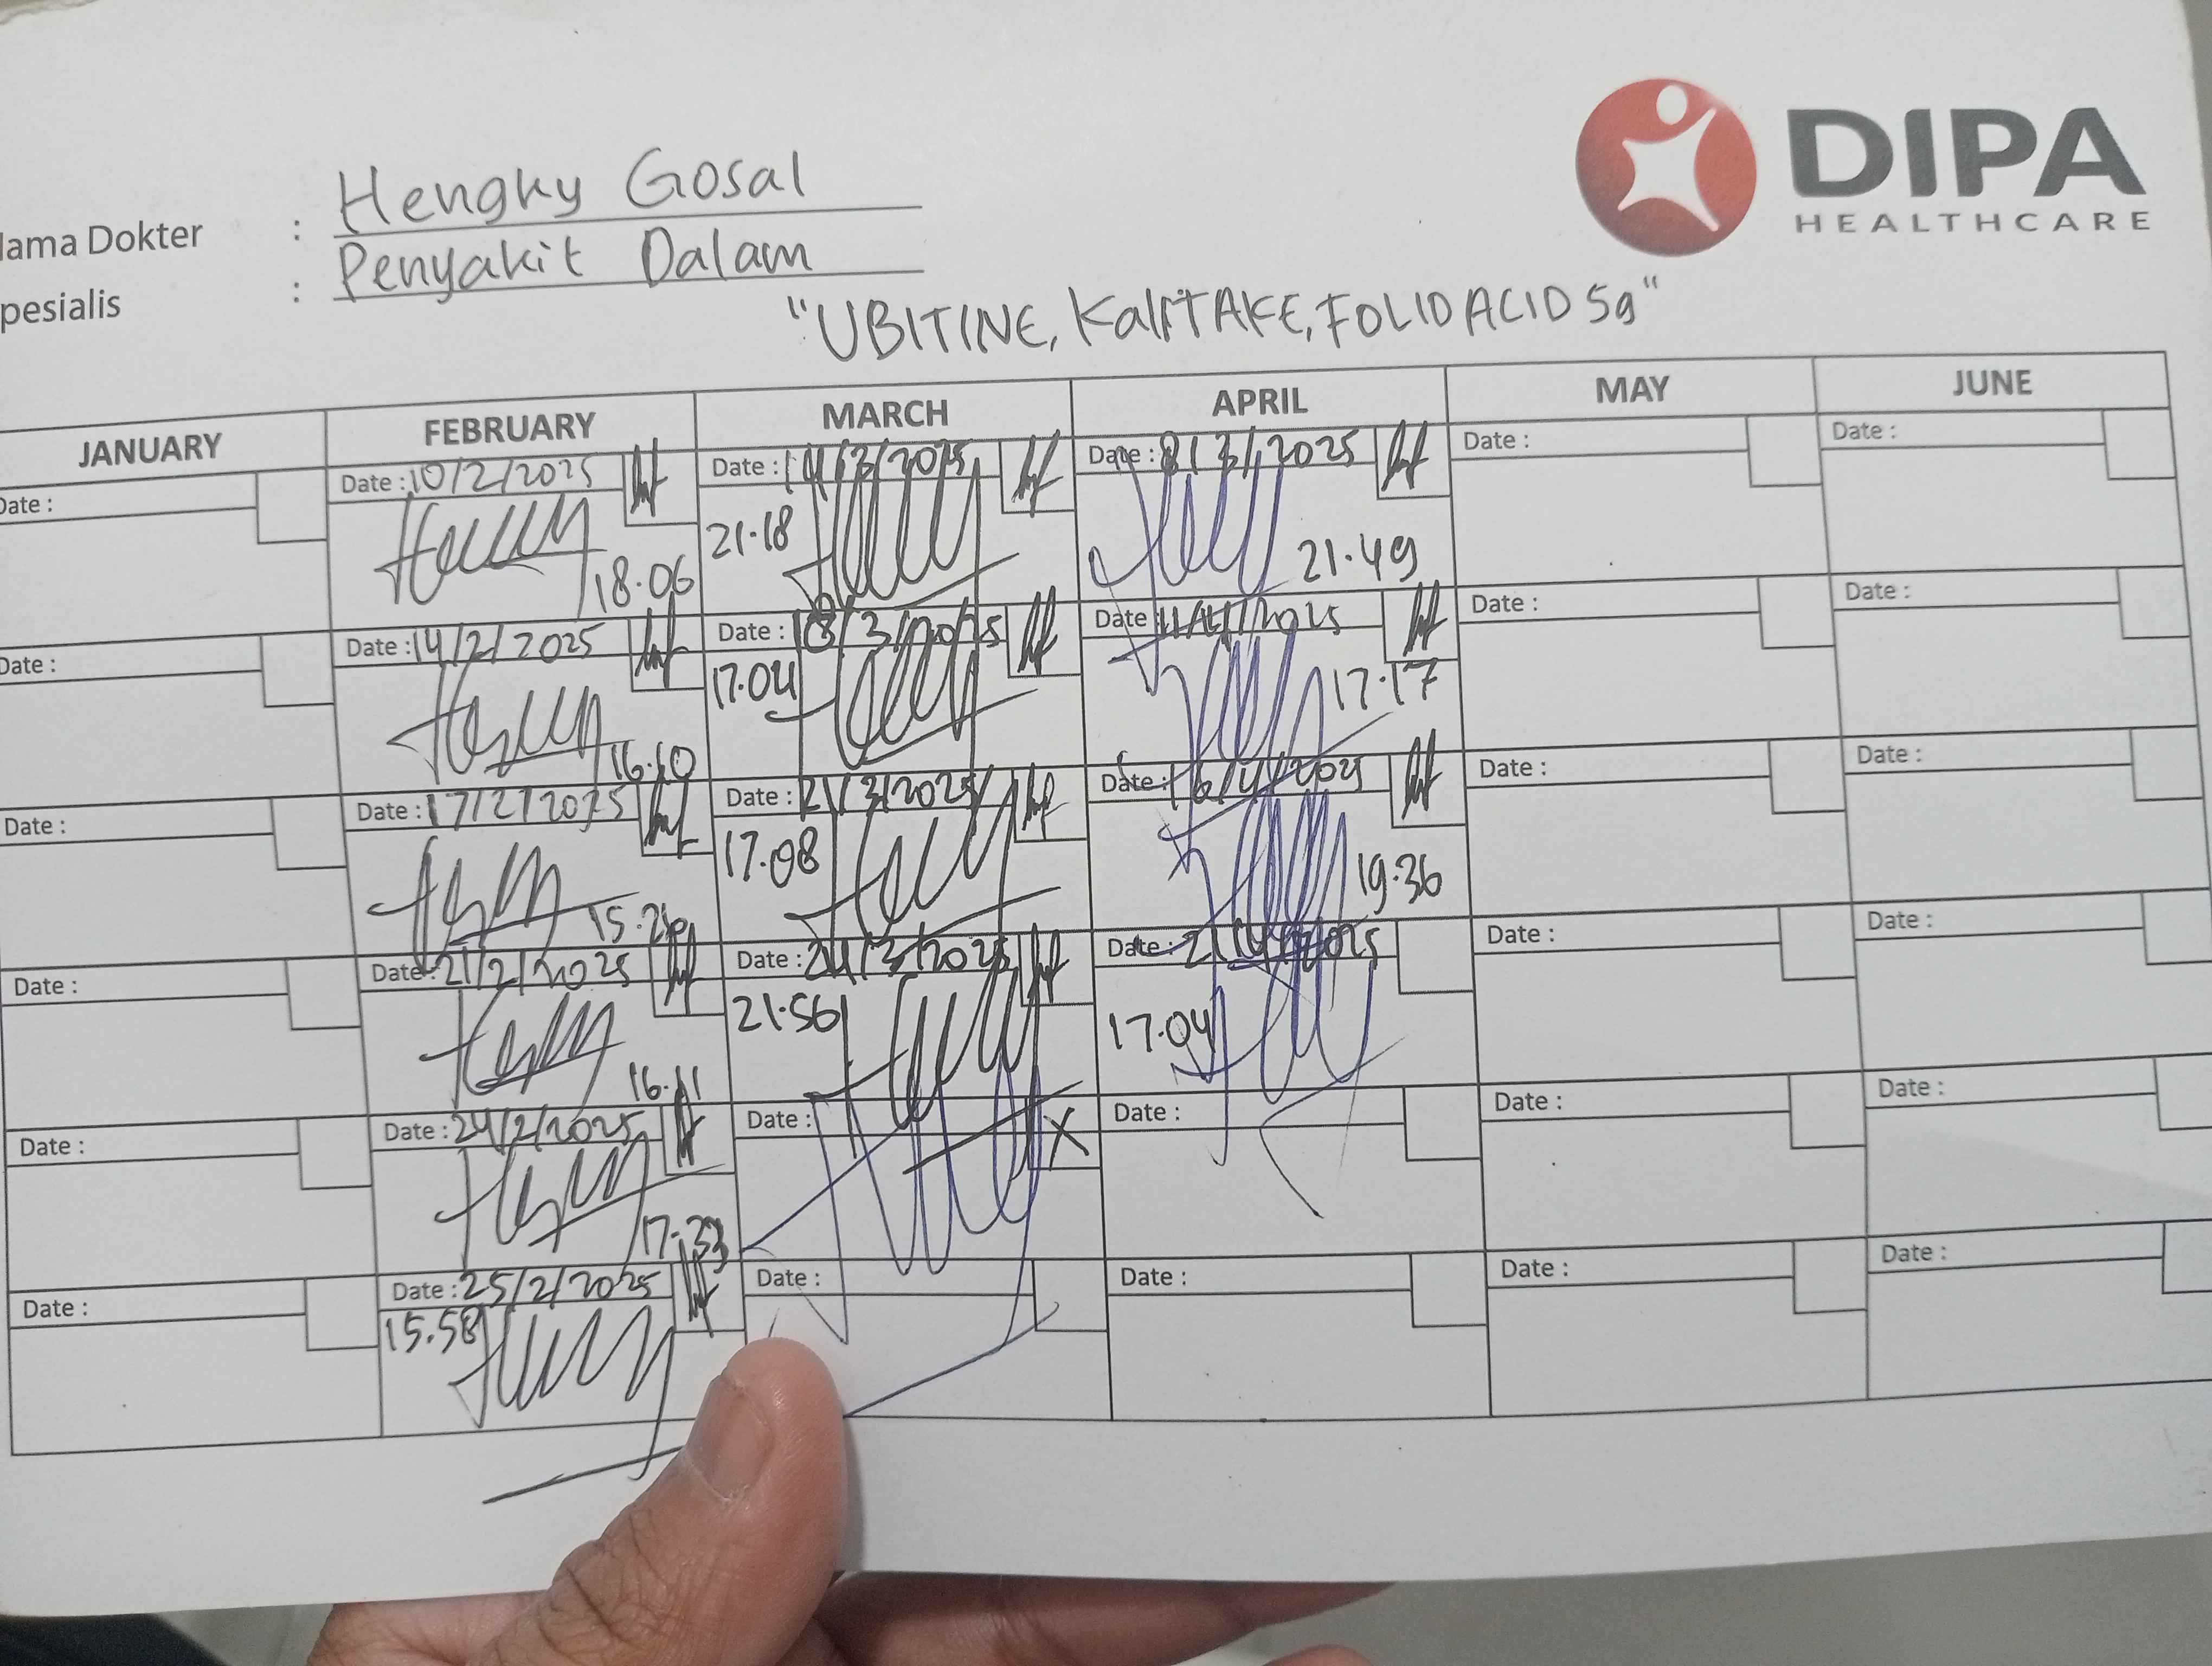 DIPA
HEALTHCARE
ama Dokter : Hengky Gosal
pesialis : Penyakit Dalam
"UBITINE, KalITAKE, FOLID ACID 5g"
JANUARY FEBRUARY MARCH APRIL MAY JUNE
Date : Date : 10/2/2025 Date : 14/3/2025 Date : 8/3/2025 Date : Date :
18.06 21.18 21.49
Date : Date : 14/2/2025 Date : 18/3/2025 Date 11/4/2025 Date : Date :
16.10 17.04 17.17
Date : Date : 17/2/2025 Date : 21/3/2025 Date : 16/4/2025 Date : Date :
15.26 17.08 19.36
Date : Date : 21/2/2025 Date : 24/3/2025 Date : 21/4/2025 Date : Date :
16.11 21.56 17.04
Date : Date : 24/2/2025 Date : X Date : Date : Date :
17.33
Date : Date : 25/2/2025 Date : Date : Date : Date :
15.58